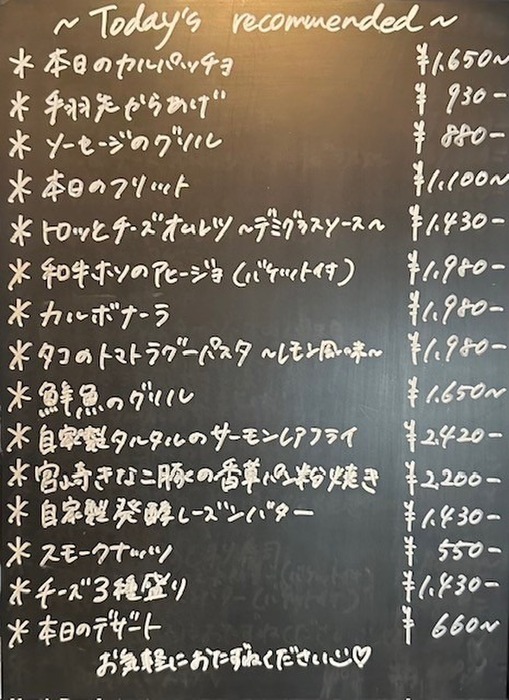 ~ Today's recommended ~
* 本日のカルパッチョ ¥1,650~
* 手羽先からあげ ¥930-
* ソーセージのグリル ¥880-
* 本日のフリット ¥1,100~
* トロッとチーズオムレツ ~デミグラスソース~ ¥1,430-
* 和牛ホソのアヒージョ (バケット付) ¥1,980-
* カルボナーラ ¥1,980-
* タコのトマトラグーパスタ ~レモン風味~ ¥1,980-
* 鮮魚のグリル ¥1,650~
* 自家製タルタルのサーモンレアフライ ¥2,420-
* 宮崎きなこ豚の香草パン粉焼き ¥2,200-
* 自家製発酵レーズンバター ¥1,430-
* スモークナッツ ¥550-
* チーズ3種盛り ¥1,430-
* 本日のデザート ¥660~
お気軽におたずねください♡